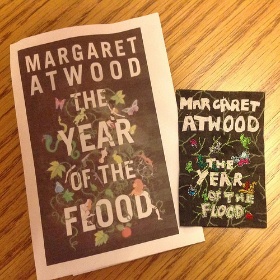 MARGARET
ATWOOD
THE
YEAR
OF THE
FLOOD
MARGARET
ATWOOD
THE
YEAR
OF THE
FLOOD